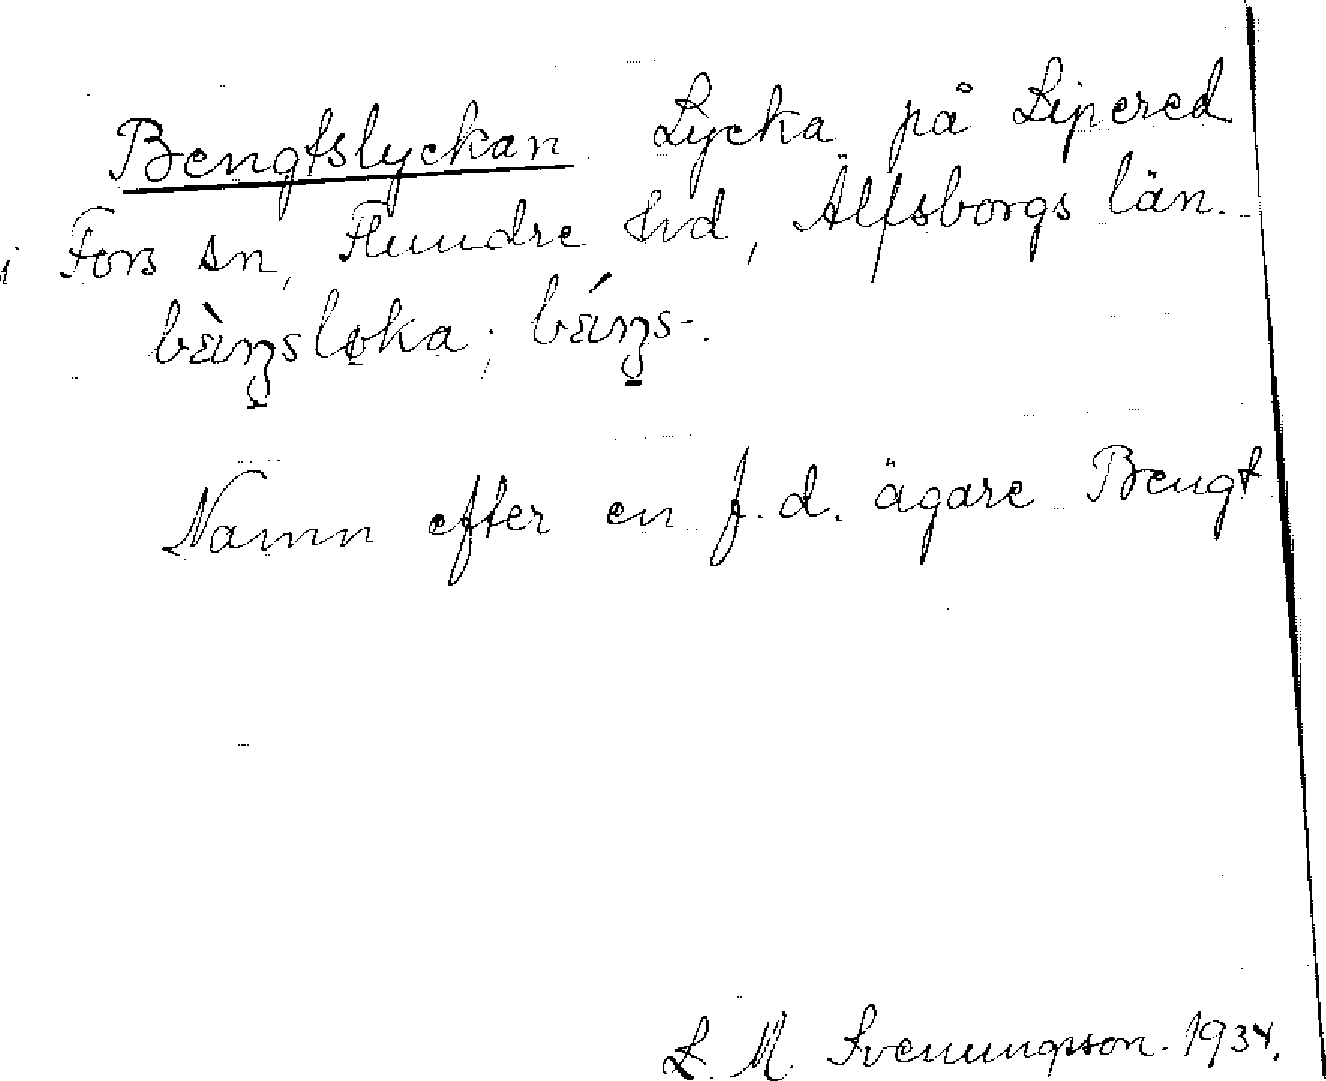 Bengtslyckan Lycka på Lipered
i Fors sn, Flundre hd, Älfsborgs län.
Namn efter en f.d. ägare Bengt
L. M. Svenungsson. 1934.